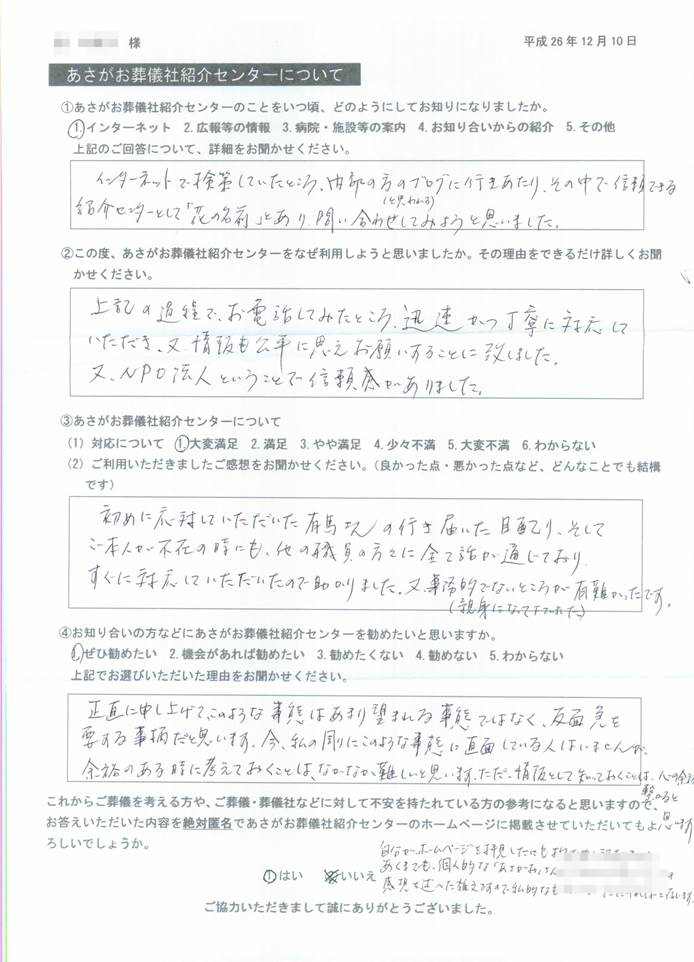 様
平成26年12月10日
あさがお葬儀社紹介センターについて
①あさがお葬儀社紹介センターのことをいつ頃、どのようにしてお知りになりましたか。
①インターネット 2.広報等の情報 3.病院・施設等の案内 4.お知り合いからの紹介 5.その他
上記のご回答について、詳細をお聞かせください。
インターネットで検索していたところ、内部の方のブログに行きあたり、その中で信頼できる
(と思われる)
紹介センターとして「花の名前」とあり、問い合わせしてみようと思いました。
②この度、あさがお葬儀社紹介センターをなぜ利用しようと思いましたか。その理由をできるだけ詳しくお聞
かせください。
上記の過程で、お電話してみたところ、迅速かつ丁寧に対応して
いただき、又情報も公平に思えお願いすることに致しました。
又、NPO法人ということで信頼感がありました。
③あさがお葬儀社紹介センターについて
(1) 対応について ①大変満足 2.満足 3.やや満足 4.少々不満 5.大変不満 6.わからない
(2) ご利用いただきましたご感想をお聞かせください。(良かった点・悪かった点など、どんなことでも結構
です)
初めに応対していただいた有馬様の行き届いた目配り、そして
ご本人が不在の時にも、他の職員の方々に全て話が通じており
すぐに対応していただいたので助かりました。又、事務的でないところが有難かったです。
(親身になって下さった)
④お知り合いの方などにあさがお葬儀社紹介センターを勧めたいと思いますか。
①ぜひ勧めたい 2.機会があれば勧めたい 3.勧めたくない 4.勧めない 5.わからない
上記でお選びいただいた理由をお聞かせください。
正直に申し上げて、このような事態はあまり望まれる事態ではなく、反面急を
要する事柄だと思います。今、私の周りにこのような事態に直面している人はいませんが、
余裕のある時に考えておくことは、なかなか難しいと思います。ただ、情報として知っておくことは、心の余裕に
繋がると
思います
これからご葬儀を考える方や、ご葬儀・葬儀社などに対して不安を持たれている方の参考になると思いますので、
お答えいただいた内容を絶対匿名であさがお葬儀社紹介センターのホームページに掲載させていただいてもよ
ろしいでしょうか。
①はい ②いいえ
自分がホームページを拝見した
あくまでも、個人的な「あさがお
感想を述べた
ご協力いただきまして誠にありがとうございました。